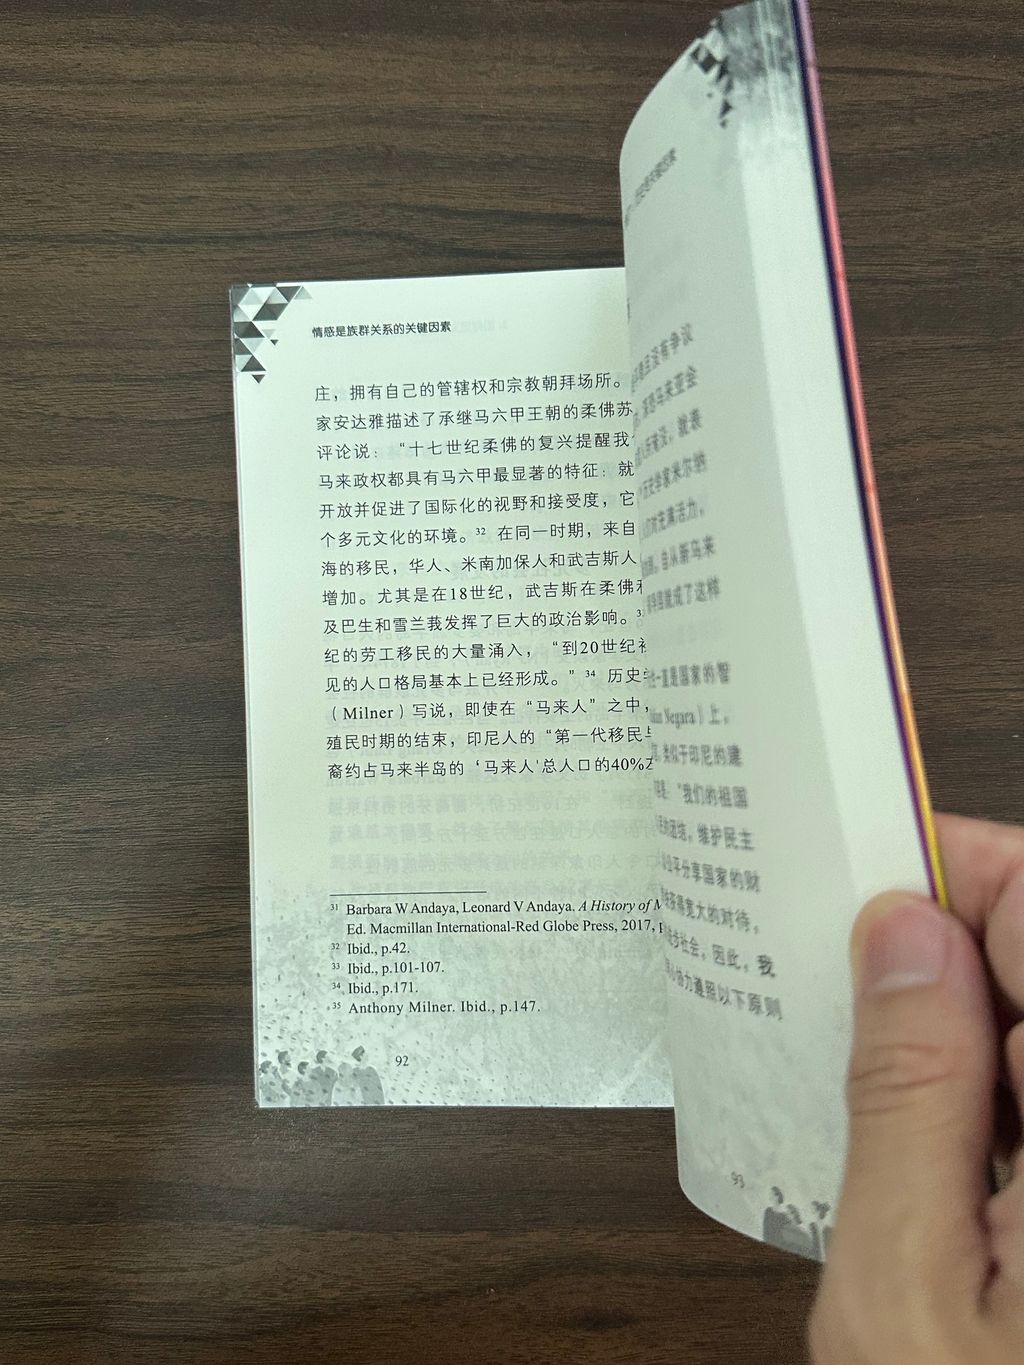 情感是族群关系的关键因素
庄，拥有自己的管辖权和宗教朝拜场所。
家安达雅描述了承继马六甲王朝的柔佛苏
评论说：“十七世纪柔佛的复兴提醒我
马来政权都具有马六甲最显著的特征：就
开放并促进了国际化的视野和接受度，它
个多元文化的环境。³² 在同一时期，来自
海的移民，华人、米南加保人和武吉斯人
增加。尤其是在18世纪，武吉斯在柔佛
及巴生和雪兰莪发挥了巨大的政治影响。
纪的劳工移民的大量涌入，“到20世纪
见的人口格局基本上已经形成。”³⁴ 历史
（Milner）写说，即使在“马来人”之中，
殖民时期的结束，印尼人的“第一代移民
裔约占马来半岛的‘马来人'总人口的40%
³¹ Barbara W Andaya, Leonard V Andaya. A History of
Ed. Macmillan International-Red Globe Press, 2017,
³² Ibid., p.42.
³³ Ibid., p.101-107.
³⁴ Ibid., p.171.
³⁵ Anthony Milner. Ibid., p.147.
92
且没有争议
马来亚会
就表
历史学家米尔纳
充满活力，
自从新马来
就成了这样
一直是国家的智
Negara）上，
类似于印尼的建
“我们的祖国
团结，维护民主
平分享国家的财
宽大的对待，
社会。因此，我
协力遵照以下原则
93